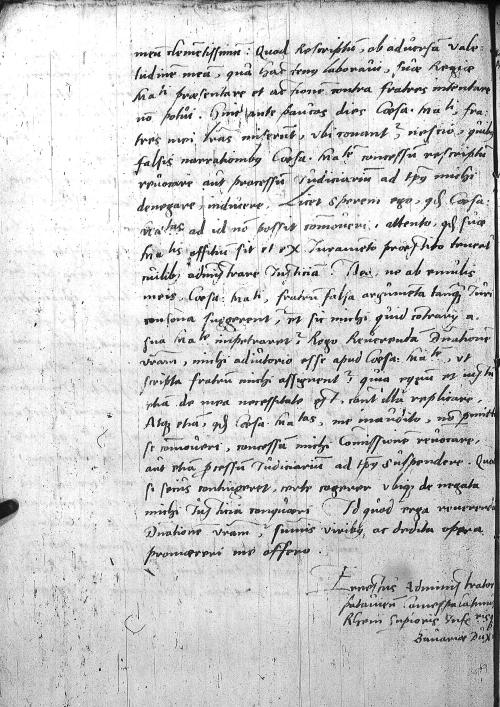 meu clementissime: Quod Rescriptu, ob adversa vale-
tudine mea, qua hactenus laboravi, suae Regiae
Ma ti praesentare et actione contra fratres intentare
no potui. Hinc ante paucos dies Caesa. Ma ti, fra-
tres mei lras miserunt, ubi conant nescio, quibus
falsis narrationibus Caesa. Ma te concessum rescriptu
revocare aut processum Iudiciarium ad tps michi
denegare, inducere. Licet sperem ego, qd Caesa.
Ma tas ad id no possit commoveri, attento, qd suae
Ma tis offitiu sit et ex Iuramento praestito teneat
cuilibet administrare Iusticia. Ne ab emulis
meis, Caesa. Ma ti, fratrum falsa argumeta tanq Iuri
consona suggerent, et sic michi quid cotrarij a
sua Ma te impetraret. Rogo Reverenda Dnatione
vram, michi adiutorio esse apud Caesa. Ma te, ut
scripta fratrum michi assignent, quia equum et iustu
etia de mea necessitate est, cont illa replicare,
Atq etia, qd Caesa. Ma tas, me inaudito, no permitt
se commoveri, concessam michi Comissione revocare,
aut etia pcessum Iudiciarium ad tps suspendere. Quod
si secus contingeret, certe cogerer ubiq de negata
michi Iusticia conquaeri. Id quod erga reverenda
Dnatione vram, summis viribus ac dedita opera
promereri me offero.
Ernestus Administrator
pataviens. Comes palatinus
Rheni Superioris Infe riorisq
Bavariae Dux